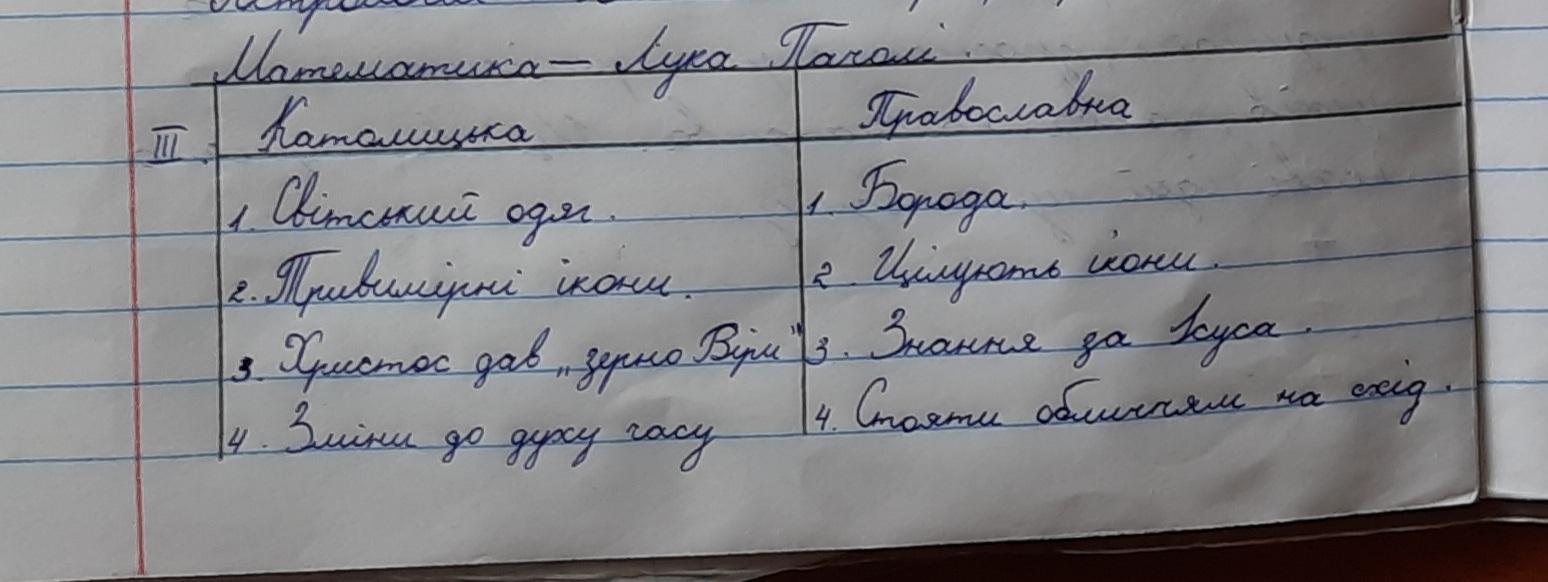 Математика — Лука Пачолі.
III. Католицька Православна
1. Світський одяг. 1. Борода.
2. Тривимірні ікони. 2. Цілують ікони.
3. Христос дав „зерно Віри" 3. Знання за Ісуса.
4. Зміни до духу часу 4. Стояти обличчям на схід.